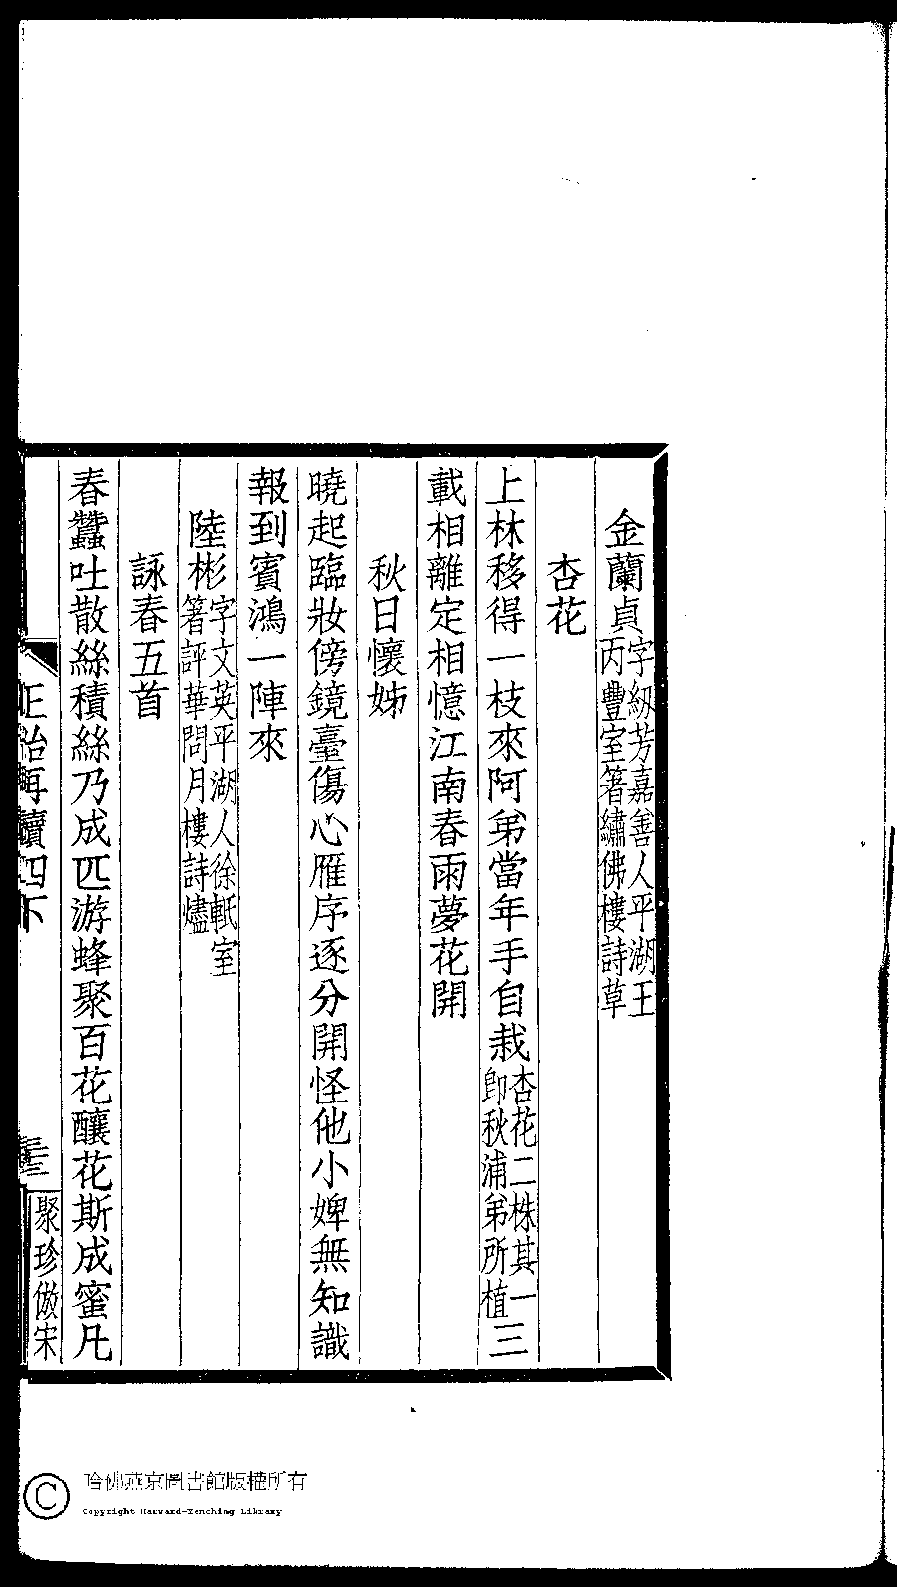 金蘭貞字紉芳嘉善人平湖王丙豐室箸繡佛樓詩草
杏花
上林移得一枝來阿弟當年手自栽杏花二株其一卽秋浦弟所植三
載相離定相憶江南春雨夢花開
秋日懷姊
曉起臨妝傍鏡臺傷心雁序逐分開怪他小婢無知識
報到賓鴻一陣來
陸彬字文英平湖人徐軧室箸評華問月樓詩燼
詠春五首
春蠶吐散絲積絲乃成匹游蜂聚百花釀花斯成蜜凡
正始再續四下
聚珍倣宋
哈佛燕京圖書館版權所有
Copyright Harvard-Yenching Library